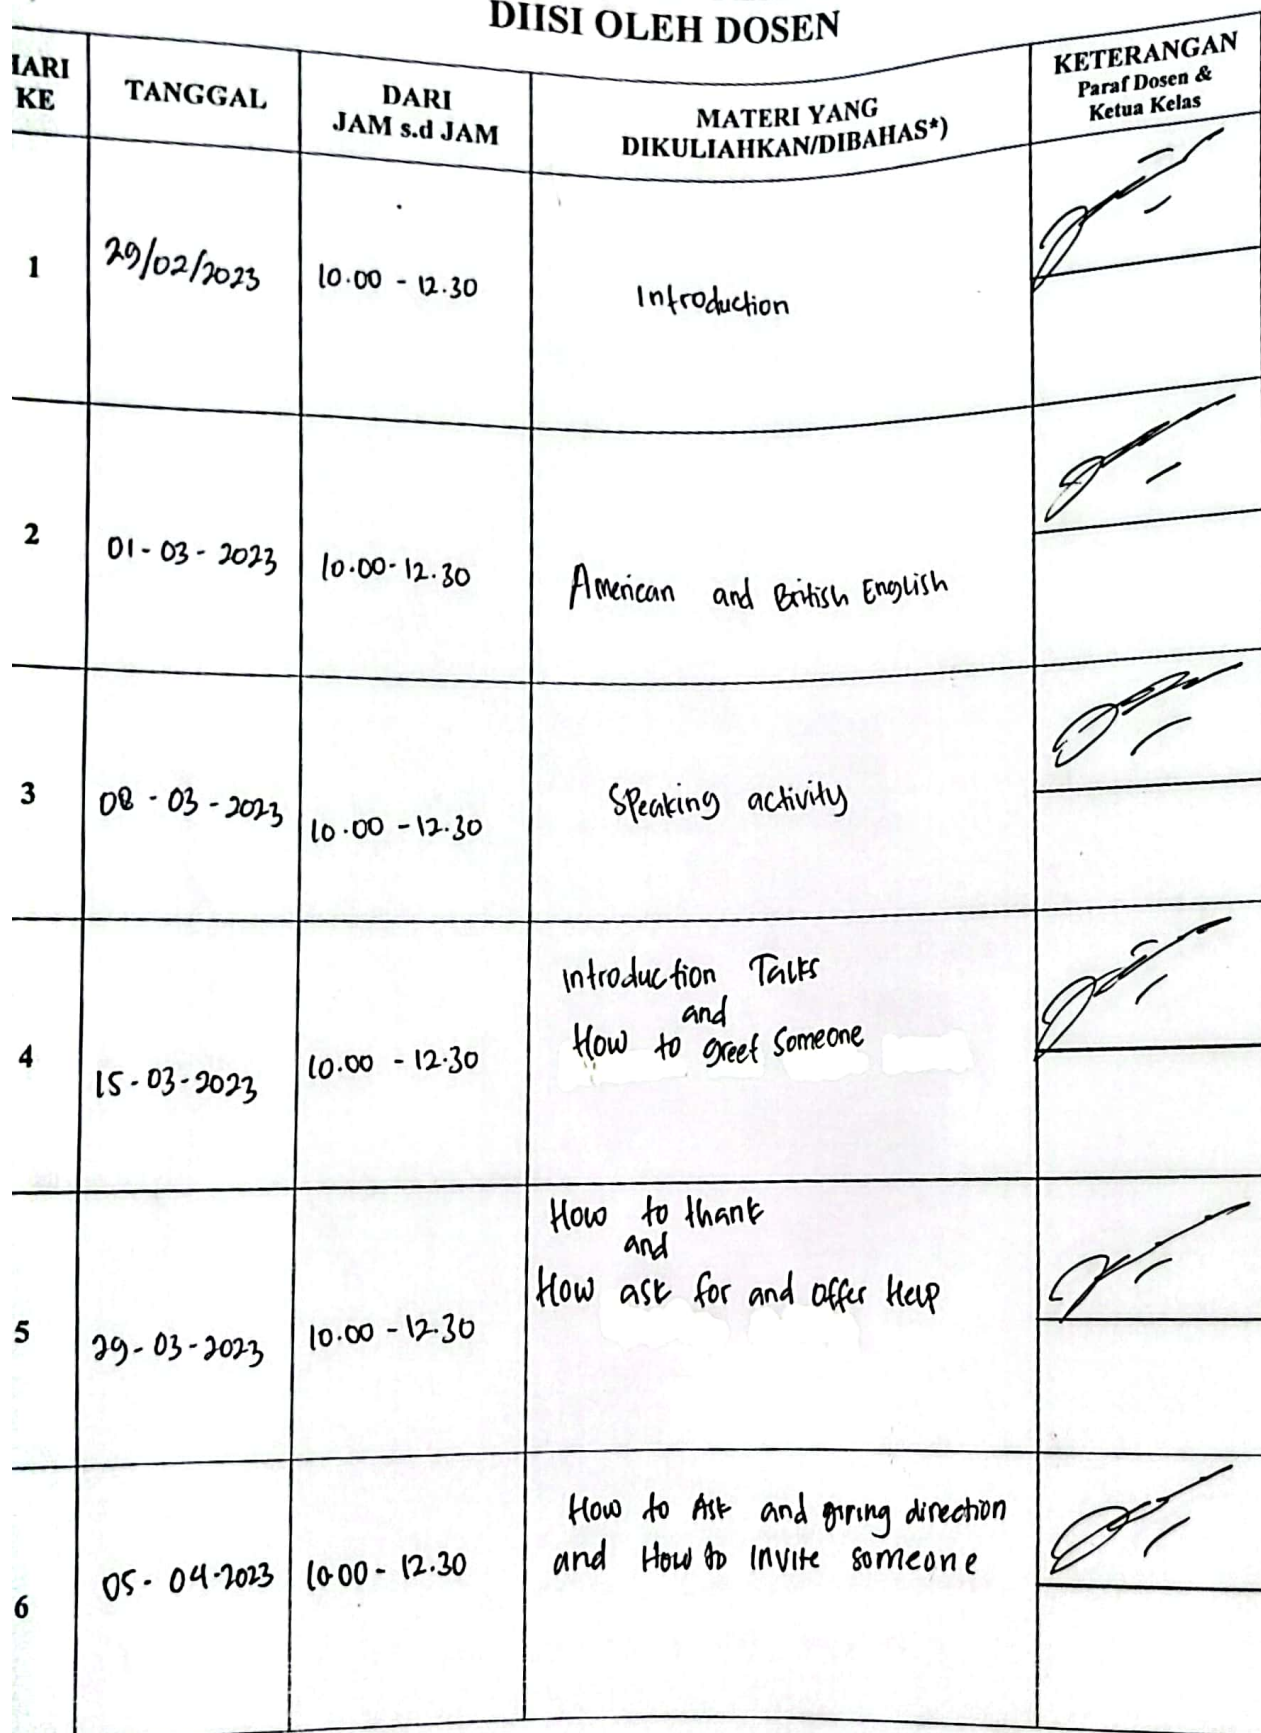 DIISI OLEH DOSEN
HARI KE
TANGGAL
DARI
JAM s.d JAM
MATERI YANG
DIKULIAHKAN/DIBAHAS*)
KETERANGAN
Paraf Dosen &
Ketua Kelas
1
29/02/2023
10.00 - 12.30
Introduction
2
01-03-2023
10.00-12.30
American and British English
3
08-03-2023
10.00-12.30
Speaking activity
4
15-03-2023
10.00-12.30
introduction Talks
and
How to greet someone
5
29-03-2023
10.00-12.30
How to thank
and
How ask for and offer Help
6
05-04-2023
10.00-12.30
How to Ask and giving direction
and How to Invite someone